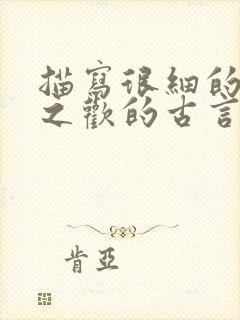 描寫很細的
之歡的古言
肯亞